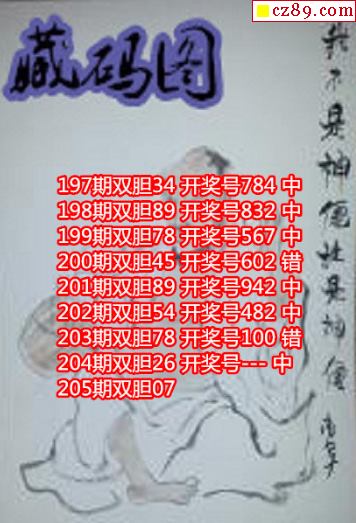 cz89.com
藏码图
我不是神仙谁是神仙
197期双胆34 开奖号784 中
198期双胆89 开奖号832 中
199期双胆78 开奖号567 中
200期双胆45 开奖号602 错
201期双胆89 开奖号942 中
202期双胆54 开奖号482 中
203期双胆78 开奖号100 错
204期双胆26 开奖号--- 中
205期双胆07